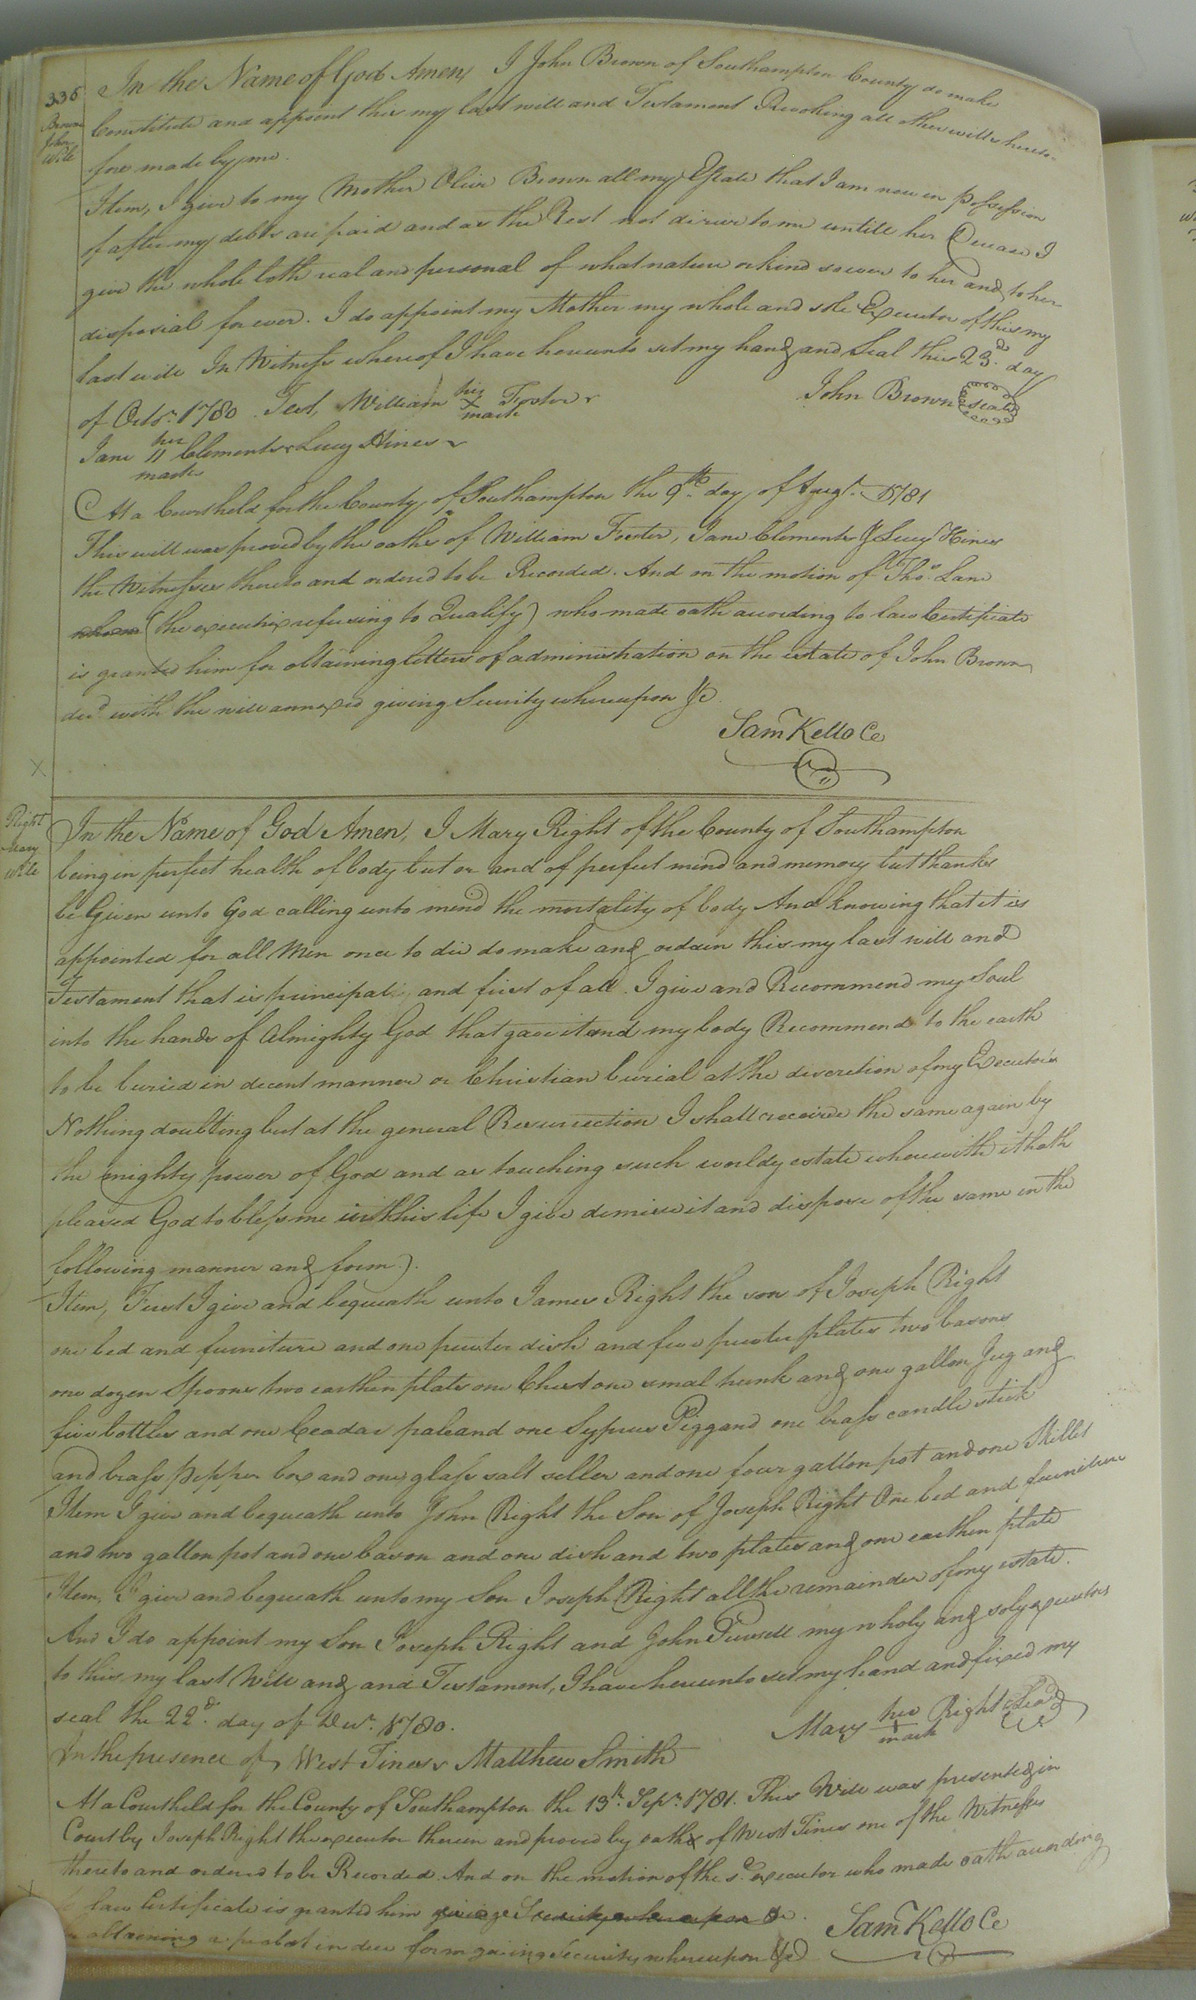 336
Brown
John
Will
In the Name of God Amen, I John Brown of Southampton County do make
Constitute and appoint this my last will and Testament Revoking all other wills hereto-
fore made by me.
Item, I give to my Mother Olive Brown all my Estate that I am now in possession
of after my debts are paid and as the Rest not dicur to me untill her Decease I
give the whole both real and personal of what nature or kind soever to her and to her
disposial for ever. I do appoint my Mother my whole and sole Executor of this my
last will In Witness whereof I have hereunto set my hand and Seal this 23.d day
of Octor. 1780. Test, William his X mark Foster
John Brown (seal)
Jane her 11 mark Clements Lucy Hines
At a Court held for the County of Southampton the 9th. day of Augt. 1781
This will was proved by the oaths of William Foster, Jane Clements & Lucy Hines
the Witnesses thereto and ordered to be Recorded. And on the motion of Thos. Lane
(the executrix refusing to Qualify) who made oath according to law Certificate
is granted him for obtaining letters of administration on the estate of John Brown
decd. with the will annexed giving Security whereupon &c
Saml Kello Cc
Right
Mary
Will
In the Name of God Amen, I Mary Right of the County of Southampton
being in perfect health of body but or and of perfect mind and memory but thanks
be Given unto God calling unto mind the mortality of body And knowing that it is
appointed for all Men once to die do make and ordain this my last will and
Testament that is principali and first of all I give and Recommend my Soul
into the hands of Almighty God that gave it and my body Recommend to the earth
to be buried in decent manner or Christian burial at the discretion of my Executors
Nothing doubting but at the general Resurrection I shall receive the same again by
the mighty power of God and as touching such worldy estate wherewith it hath
pleased God to bless me in this life I give demise it and dispose of the same in the
following manner and form).
Item, First I give and bequeath unto James Right the son of Joseph Right
one bed and furniture and one pewter dish and five pewter plates two basons
one dozen Spoons two earthen plates one Chest one smal trunk and one gallon Jug and
five bottles and one Ceadar pale and one Syprus Piggand one brass candle stick
and brass pepper box and one glass salt seller and one four gallon pot and one Skillet
Item I give and bequeath unto John Right the Son of Joseph Right One bed and furniture
and two gallon pot and one bason and one dish and two plates and one earthen plate
Item, I give and bequeath unto my Son Joseph Right all the remainder of my estate.
And I do appoint my Son Joseph Right and John Pursell my wholy and soly executors
to this my last Will and and Testament, I have hereunto set my hand and fixed my
seal the 22d. day of Decr. 1780.
Mary her + mark Right (Seal)
In the presence of West Tines Matthew Smith
At a Court held for the County of Southampton the 13th. Sepr. 1781. This Will was presented in
Court by Joseph Right the executor therein and proved by oath of West Tines one of the Witnesses
thereto and ordered to be Recorded. And on the motion of the sd. executor who made oath according
to law Certificate is granted him giving Security whereupon &c.
obtaining a probat in due form giving Security whereupon &c
Saml Kello Cc